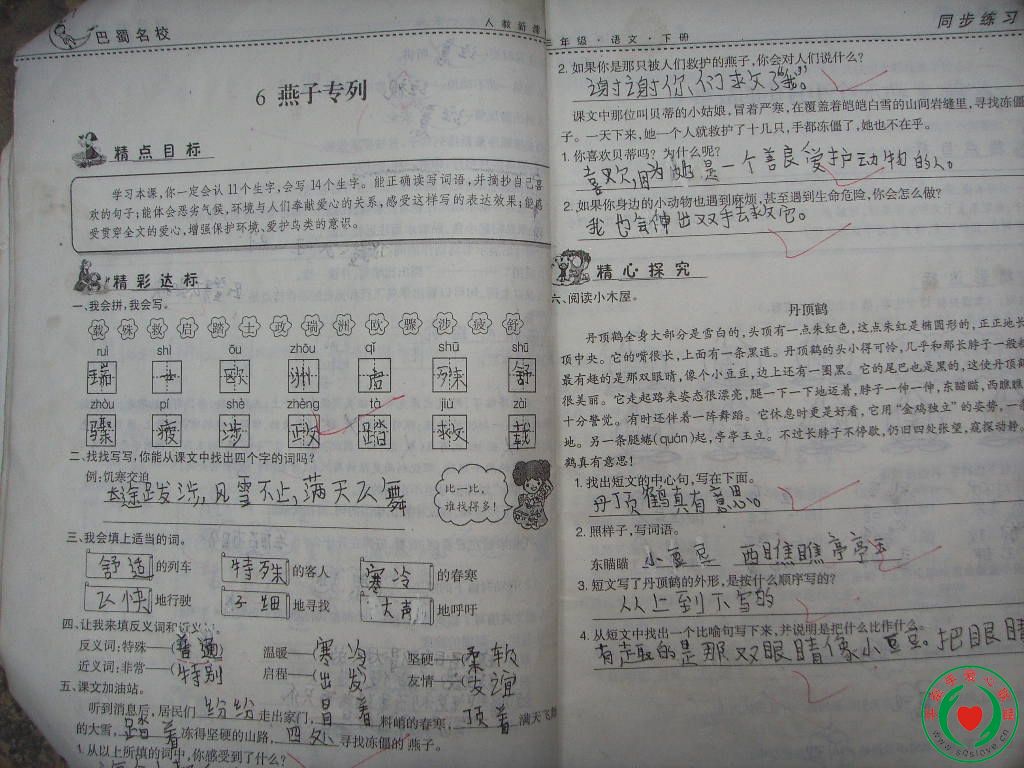 巴蜀名校
人教新课
6 燕子专列
精点目标
学习本课,你一定会认11个生字,会写14个生字。能正确读写词语,并摘抄自己喜
欢的句子;能体会恶劣气候,环境与人们奉献爱心的关系,感受这样写的表达效果;能感
受贯穿全文的爱心,增强保护环境、爱护鸟类的意识。
精彩达标
一、我会拼,我会写。
载 殊 救 启 踏 士 政 瑞 洲 欧 骤 涉 疲 舒
ruì shì ōu zhōu qǐ shū shū
瑞 士 欧 洲 启 殊 舒
zhòu pí shè zhèng tà jiù zài
骤 疲 涉 政 踏 救 载
二、找找写写,你能从课文中找出四个字的词吗?
例:饥寒交迫
长途跋涉,风雪不止,满天飞舞
比一比,
谁找得多!
三、我会填上适当的词。
舒适的列车 特殊的客人 寒冷的春寒
飞快地行驶 子细地寻找 大声地呼吁
四、让我来填反义词和近义词。
反义词:特殊—(普通) 温暖—(寒冷) 坚硬—(柔软)
近义词:非常—(特别) 启程—(出发) 友情—(友谊)
五、课文加油站。
听到消息后,居民们纷纷走出家门,冒着料峭的春寒,顶着满天飞舞
的大雪,踏着冻得坚硬的山路,四处寻找冻僵的燕子。
1.从以上所填的词中,你感受到了什么?
三年级·语文·下册
同步练习
2.如果你是那只被人们救护的燕子,你会对人们说什么?
谢谢你们救了我。”
课文中那位叫贝蒂的小姑娘,冒着严寒,在覆盖着皑皑白雪的山间岩缝里,寻找冻僵的燕
子。一天下来,她一个人就救护了十几只,手都冻僵了,她也不在乎。
1.你喜欢贝蒂吗?为什么呢?
喜欢,因为她是一个善良爱护动物的人。
2.如果你身边的小动物也遇到麻烦,甚至遇到生命危险,你会怎么做?
我也会伸出双手去救它。
精心探究
六、阅读小木屋。
丹顶鹤
丹顶鹤全身大部分是雪白的,头顶有一点朱红色,这点朱红是椭圆形的,正正地长
顶中央。它的嘴很长,上面有一条黑道。丹顶鹤的头小得可怜,几乎和那长脖子一般粗
最有趣的是那双眼睛,像个小豆豆,边上还有一圈黑。它的尾巴也是黑的,这使丹顶鹤
很美丽。它走起路来姿态很漂亮,腿一下一下地迈着,脖子一伸一伸,东瞄瞄,西瞧瞧
十分警觉。有时还伴着一阵舞蹈。它休息时更是好看,它用“金鸡独立”的姿势,一条
地。另一条腿蜷(quán)起,亭亭玉立。不过长脖子不停歇,仍旧四处张望,窥探动静。
鹤真有意思!
1.找出课文的中心句,写在下面。
丹顶鹤真有意思。
2.照样子,写词语。
东瞄瞄 小豆豆 西瞧瞧 亭亭
3.短文写了丹顶鹤的外形,是按什么顺序写的?
从上到下写的
4.从短文中找出一个比喻句写下来,并说明是把什么比作什么。
有趣的是那双眼睛像小豆豆。把眼睛
www.sqslove.cn